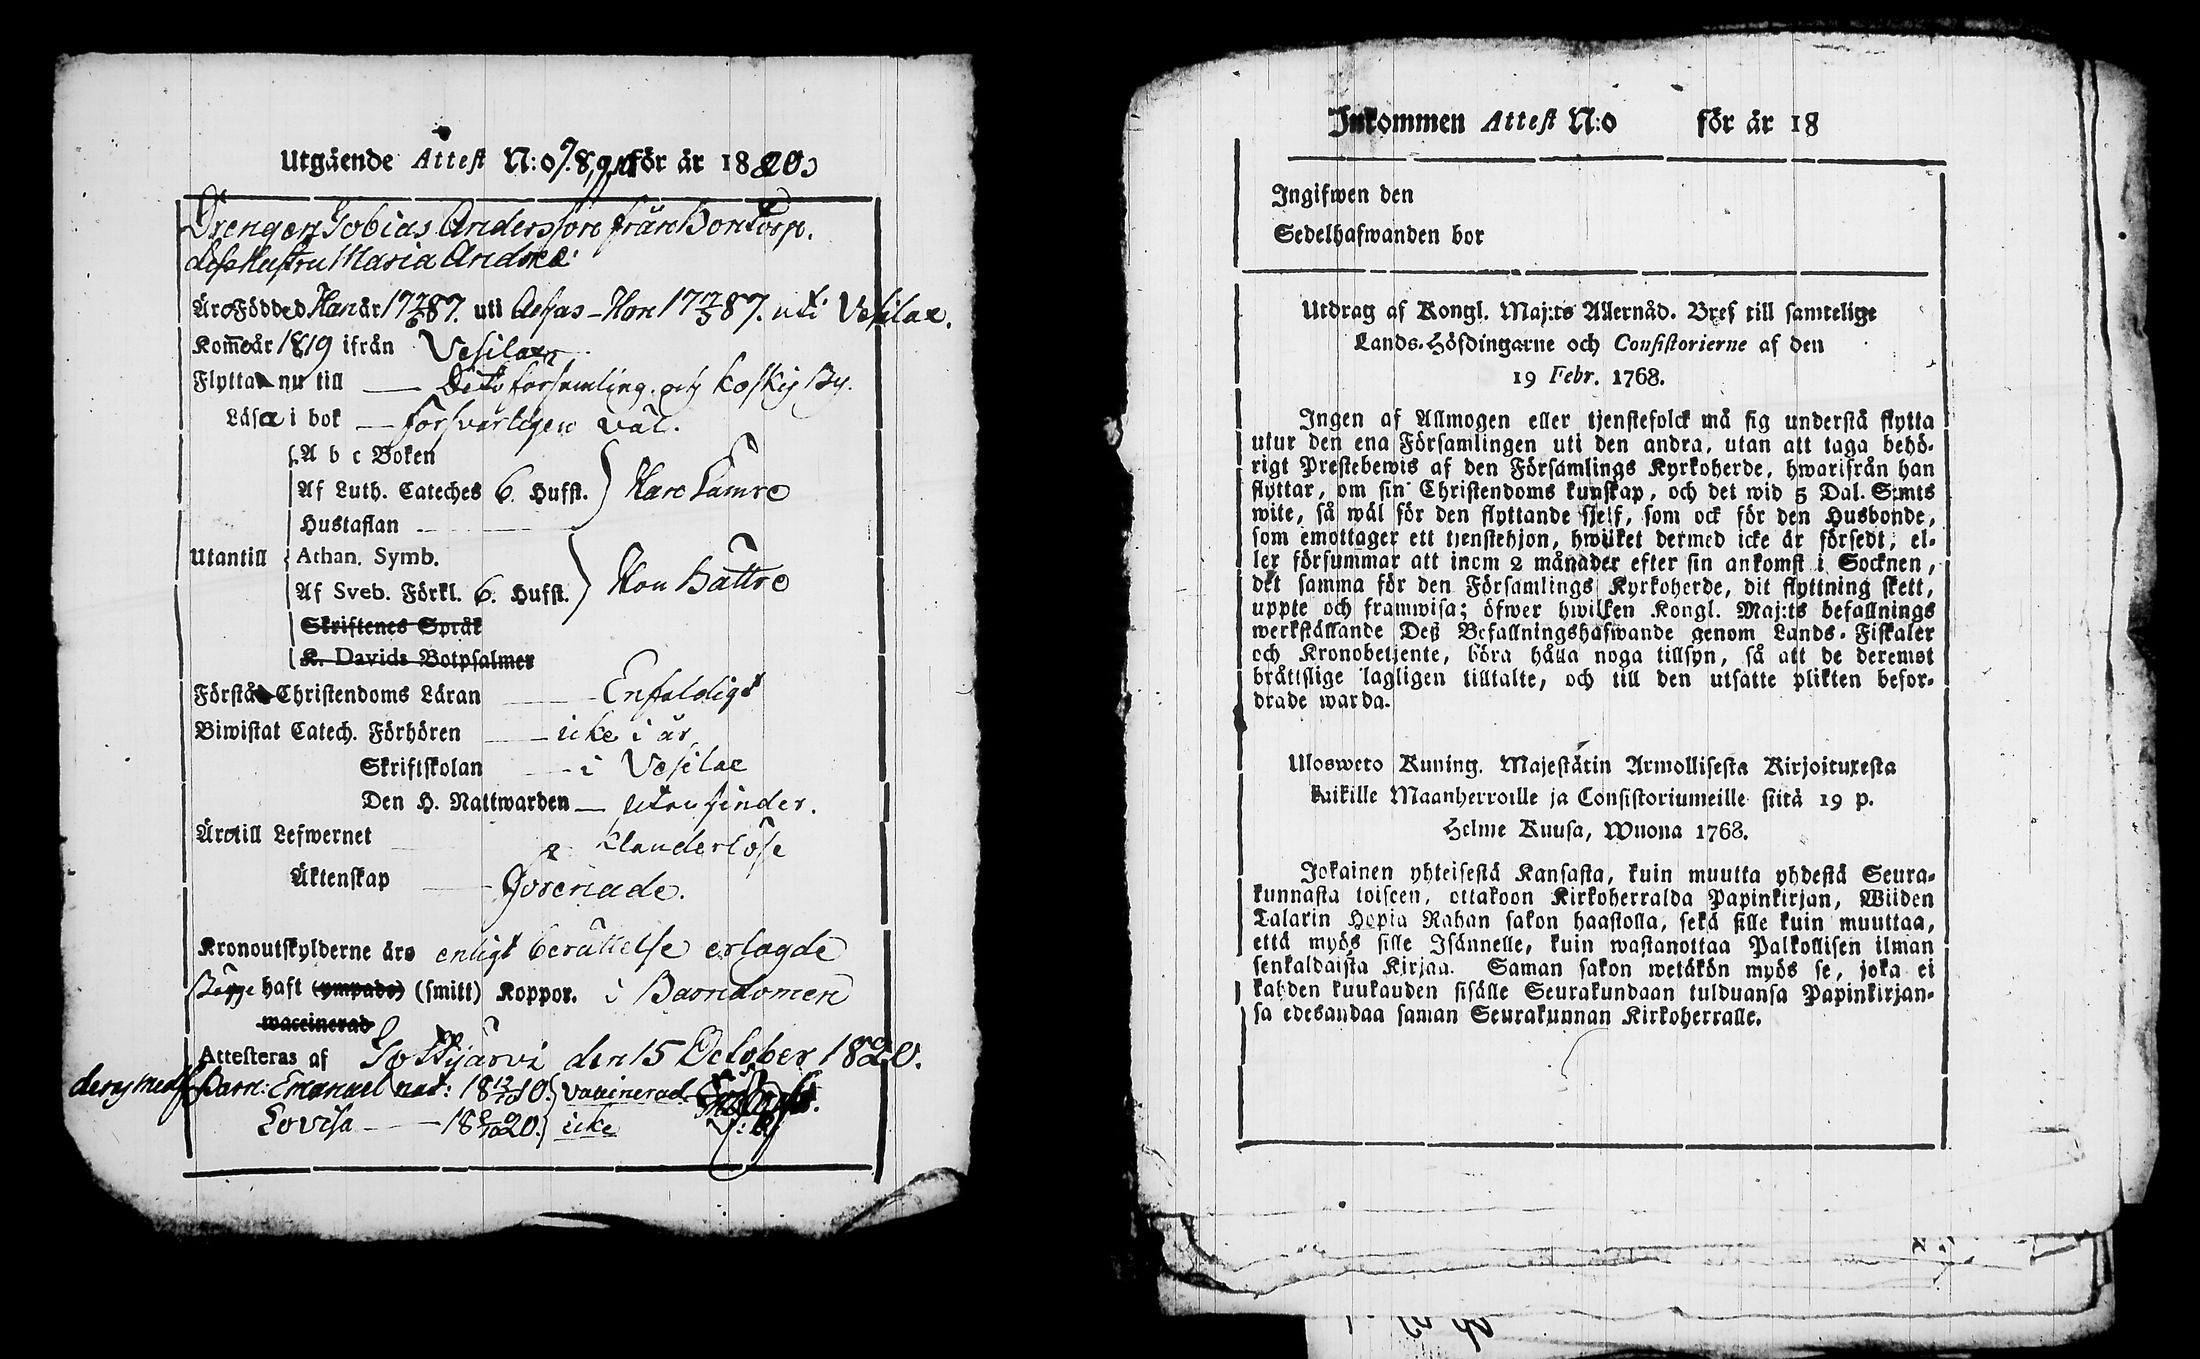 Utgående Attest N:o 7.8,9,10 för år 1820
Drengen Tobias Andersson från Bontorp.
dess Hustru Maria Andrea:
Äro Födde Han år 17 87. uti Aesas – Hon 17 87. uti Vesilax.
Komne år 1819 ifrån Vesilax
Flytta nu till — Dito församling. och Koskis By.
Läsa i bok — försvarligen väl.
A b c Boken
Af Luth. Cateches 6. Hufst. Han Sämre
Hustaflan
Utantill Athan. Symb.
Af Sveb. Förkl. 6. Hufst. Hon Bättre
Skriftenes Språk
K. Davids Botpsalmer
Förstå Christendoms Läran — Enfaldigt
Biwistat Catech. Förhören — icke i år
Skriftskolan — i Vesilax
Den H. Nattwarden — utan hinder.
Äro till Lefwernet klanderlöse
Äktenskap — förenade.
Kronoutskylderne äro enligt berättelse erlagde
Bägge haft (ympade) (smitt) Koppor. i Barndomen
waccinerad
Attesteras af Tottijärvi den 15 October 1820.
Barn: Emanuel nat: 18 10. vaccinerad.
Lovisa — 18 20. icke
Inkommen Attest N:o för år 18
Ingifwen den
Sedelhafwanden bor
Utdrag af Kongl. Maj:ts Allernåd. Bref till samtelige
Lands-Höfdingarne och Consistorierne af den
19 Febr. 1768.
Ingen af Allmogen eller tjenstefolck må sig understå flytta
utur den ena Församlingen uti den andra, utan att taga behö-
rigt Prestebewis af den Församlings Kyrkoherde, hwarifrån han
flyttar, om sin Christendoms kunskap, och det wid 5 Dal. S:mts
wite, så wäl för den flyttande sjelf, som ock för den Husbonde,
som emottager ett tjenstehjon, hwilket dermed icke är försedt, el-
ler försummar att inom 2 månader efter sin ankomst i Socknen,
det samma för den Församlings Kyrkoherde, dit flyttning skett,
uppte och framwisa; öfwer hwilken Kongl. Maj:ts befallnings
werkställande Deß Befallningshafwande genom Lands-Fiskaler
och Kronobetjente, böra hålla noga tillsyn, så att de deremot
bråttslige lagligen tilltalte, och till den utsatte plikten befor-
drade warda.
Ulosweto Kuning. Majestätin Armollisesta Kirjoituxesta
kaikille Maanherroille ja Consistoriumeille siitä 19 p.
Helme Kuusa, Wuona 1768.
Jokainen yhteisestä Kansasta, kuin muutta yhdestä Seura-
kunnasta toiseen, ottakoon Kirkoherralda Papinkirjan, Wiiden
Talarin Hopia Rahan sakon haastolla, sekä sille kuin muuttaa,
että myös sille Isännelle, kuin wastanottaa Palkollisen ilman
senkaldaista Kirjaa. Saman sakon wetäkön myös se, joka ei
kahden kuukauden sisälle Seurakundaan tulduansa Papinkirjan-
sa edesandaa saman Seurakunnan Kirkoherralle.